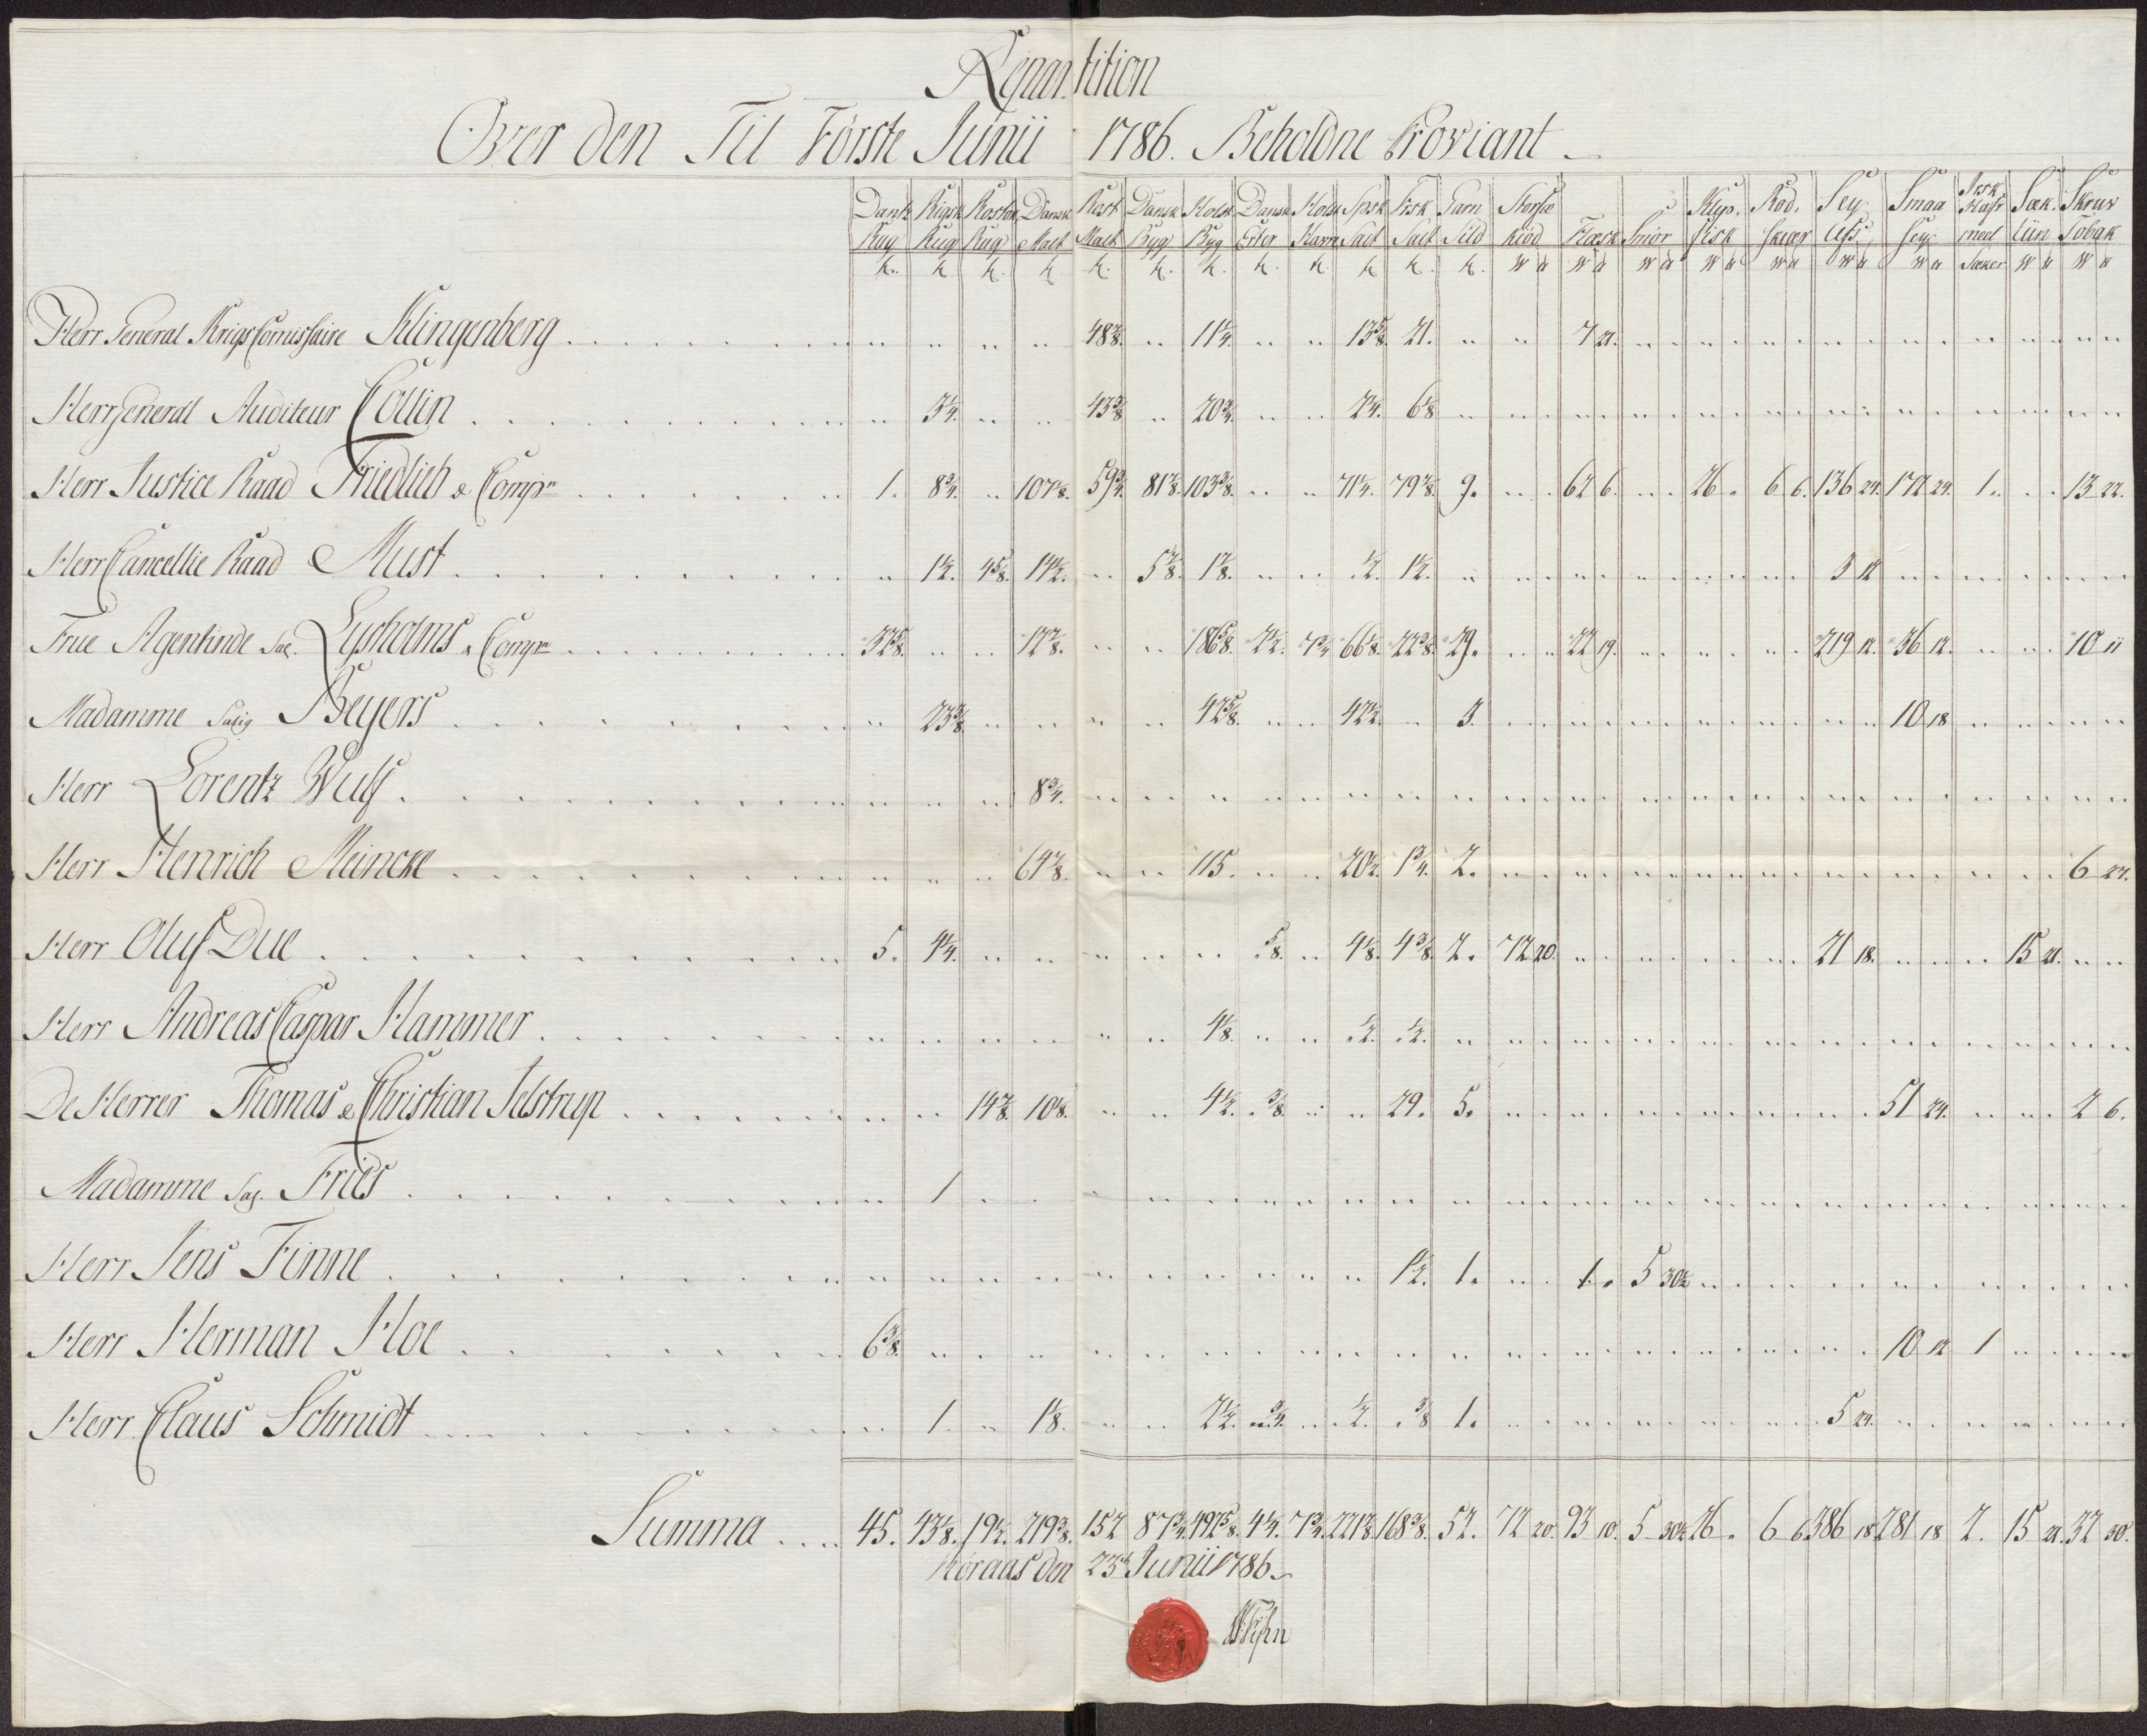 Repartition
Over den Til Förste Junii 1786. Beholdne Proviant
Dantz Rigsk Rostok Dansk Rost Dansk Holst Dansk Holst Spsk Frsk Garn Storfæ Klip. Rod. Sey. Smaa Irsk Hafr Sæk. Skruv
Rug Rug Rug Malt Malt Byg Byg Erter Havre Salt Salt Sild Kiöd Flæsk Smör fisk skiær sey meel liin Tobak
Sæker
Herr General Krigs Comissaire Klingenberg 48 7/8. 11 1/4. 13 5/8. 21. 7 21.
Herr General Auditeur Collin 3 1/4. 43 3/8 20 3/4. 2 1/4. 6 1/8
Herr Justice Raad Friedlieb & Compn 1. 8 3/4. 107 1/8. 59 3/4. 81 7/8. 103 3/8. 71 1/4. 79 7/8. 9. 62 6. 26. 6 6. 136 24. 172 24. 1. 13 22.
Herr Cancellie Raad Must 1 1/2. 4 5/8. 14 1/2. 5 7/8. 1 7/8. 1/2. 1 1/2. 3 12
Frue Agentinde Sal. Lysholms & Compn 32 5/8. 12 7/8. 186 5/8. 2 1/2. 7 3/4 66 1/8. 22 3/8. 29. 22 19. 219 12. 36 12. 10 11
Madamme Salig Beyers 23 3/8 42 5/8. 42 1/2. 3. 10 18
Herr Lorentz Wulf 8 3/4.
Herr Henrich Meincke 64 7/8. 115. 20 1/2. 1 3/4. 2. 6 27.
Herr Oluf Due 5. 4 1/4. 5/8. 4 1/8. 4 3/8. 2. 72 20. 21 18. 15 21.
Herr Andreas Caspar Hammer 4 1/8. 1/2. 1/2.
De Herrer Thomas & Christian Jelstrup 14 7/8. 10 1/8. 4 1/2. 3/8 29. 5. 51 24. 2 6.
Madamme Sag. Fries 1
Herr Jens Finne 1 1/2. 1. 1. 5 30 1/2
Herr Herman Hoe 6 3/8. 10 12 1
Herr Claus Schmidt 1. 1 1/8. 2 1/2. 3/4. 1/2. 3/8 1. 5 24.
Summa 45. 43 1/8. 19 1/2. 219 3/8. 152 87 3/4. 492 5/8. 4 1/4. 7 3/4. 221 7/8. 168 3/8. 52. 72 20. 93 10. 5 30 1/2 26. 6 6. 386 18 281 18 2. 15 21. 32 30.
Röraas den 23de Junii 1786.